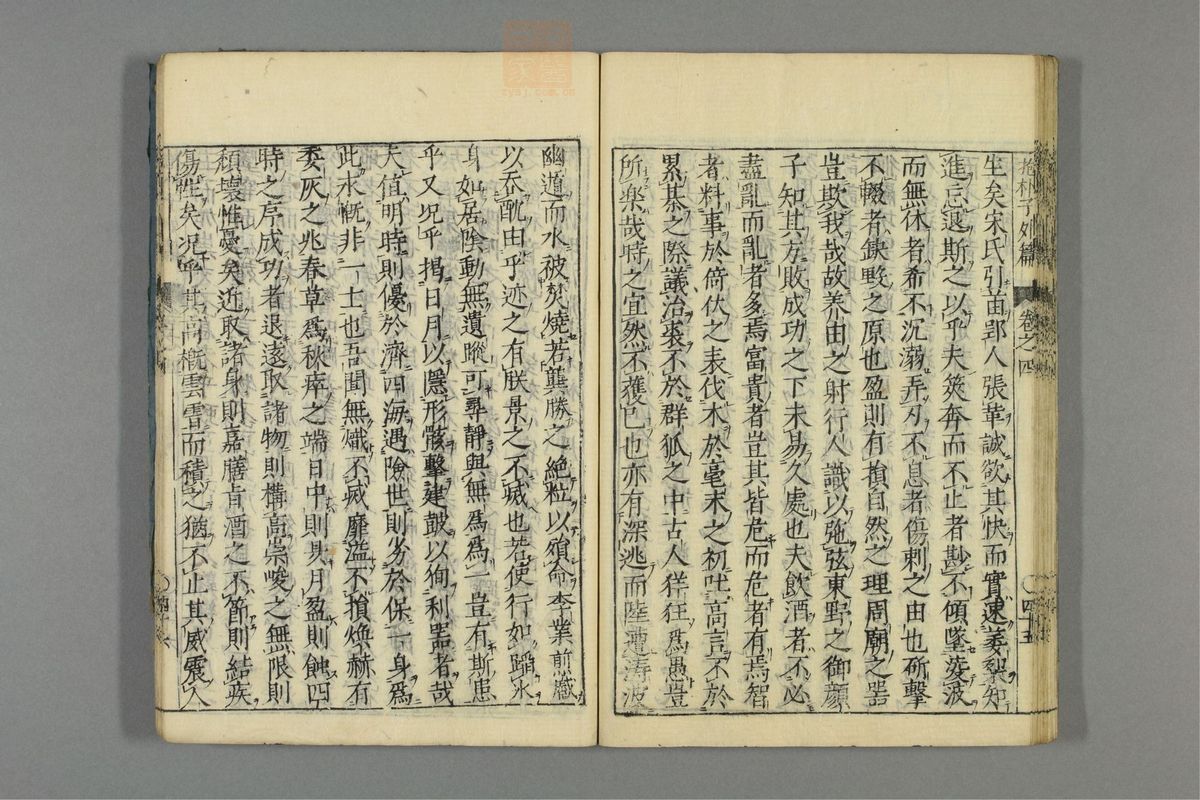 抱朴子外篇 卷之四 四十五
生矣宋氏引苗郢人張華誠欲其快而實速萎裂知
進忘退斯之以乎夫筴奔而不止者尠不傾墜淩波
而無休者希不沉溺弄刃不息者傷刺之由也斫擊
不輟者缺毀之原也盈則有損自然之理周廟之噐
豈欺我哉故養由之射行人識以弛弦東野之御顔
子知其方敗成功之下未易久處也夫飲酒者不必
盡亂而亂者多焉富貴者豈其皆危而危者有焉智
者料事於倚伏之表伐木於毫末之初吐高言不於
累棊之際議治裘不於群狐之中古人佯狂為愚豈
所樂哉時之宜然不獲巳也亦有深逃而陸遭濤波
幽遁而水被焚燒若龔勝之絶粒以殞命李業煎蹙
以吞酖由乎迹之有朕景之不滅也若使行如蹈氷
身如居陰動無遺蹤可尋靜與無爲爲一豈有斯患
乎又况乎揭日月以隱形骸擊建皷以徇利噐者哉
夫値明時則優於濟四海遇險世則劣於保一身爲
此永慨非一士也吾聞無熾不滅靡溢不損煥赫有
委灰之兆春草爲秋瘁之端日中則昃月盈則蝕四
時之序成功者退遠取諸物則構高崇峻之無限則
頽壞惟憂矣近取諸身則嘉膳旨酒之不節則結疾
傷性矣况乎其高概雲霄而積之猶不止其威震人